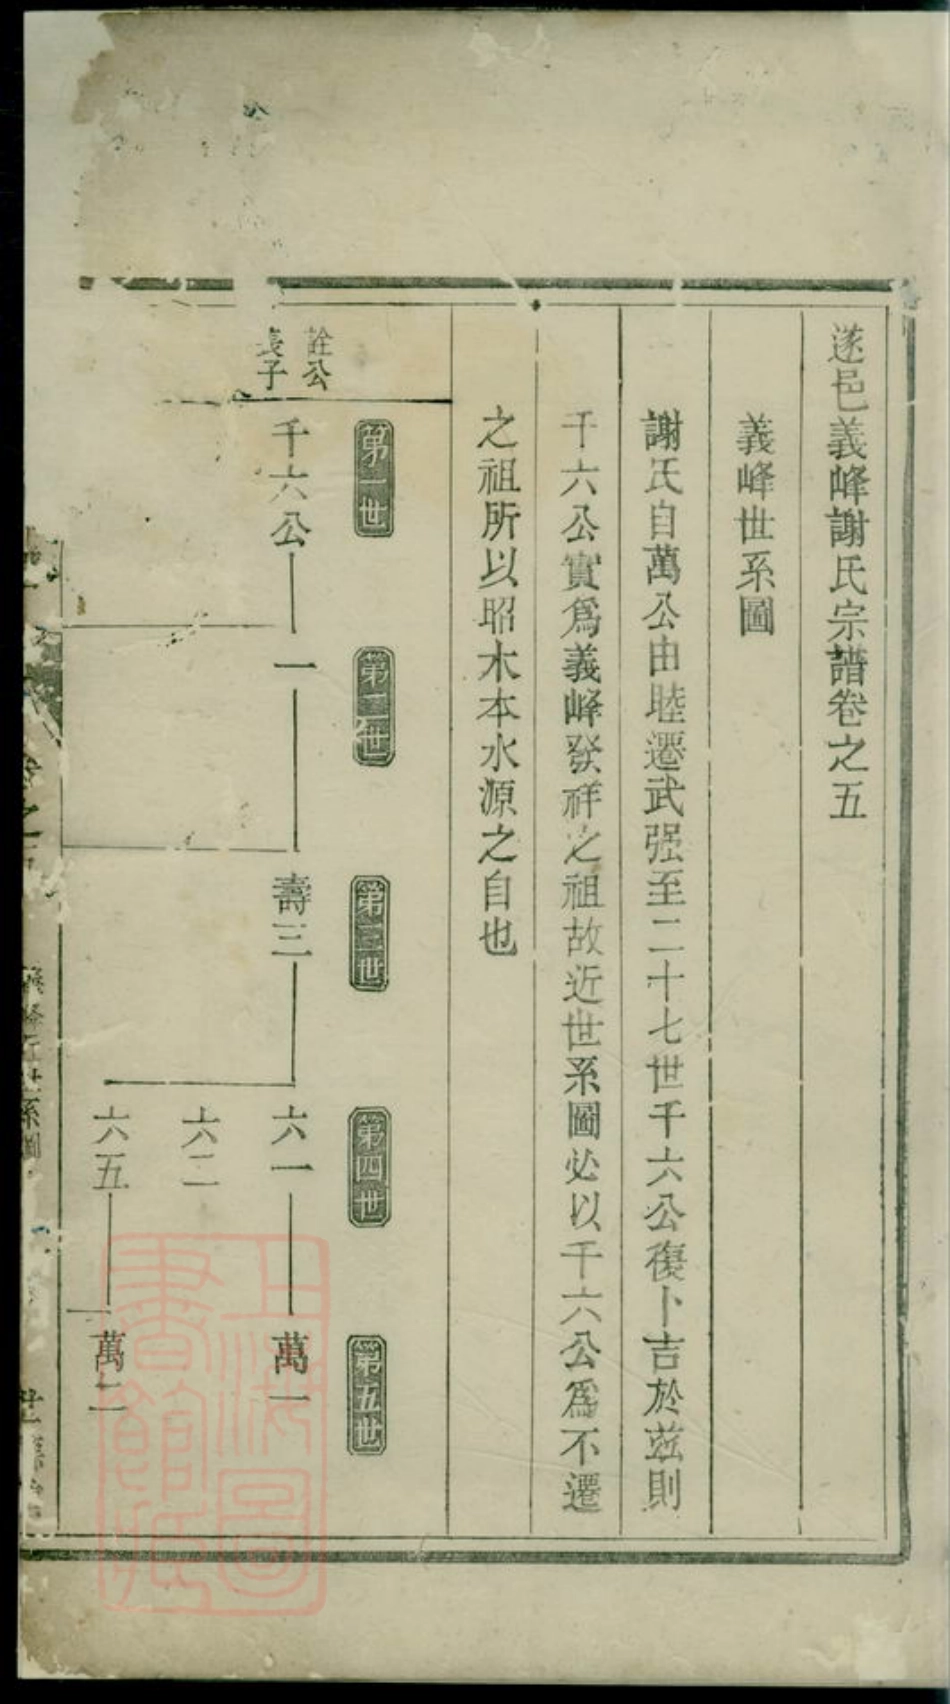 遂邑義峰謝氏宗譜卷之五
義峰世系圖
謝氏自萬公由睦遷武强至二十七世千六公復卜吉於茲則
千六公實爲義峰發祥之祖故近世系圖必以千六公爲不遷
之祖所以昭木本水源之自也
第一世
第二世
第三世
第四世
第五世
詮公
長子
千六公
一
壽三
六一
萬一
六二
六五
萬二
卷之五
義峰近世系圖
上海圖
書館藏